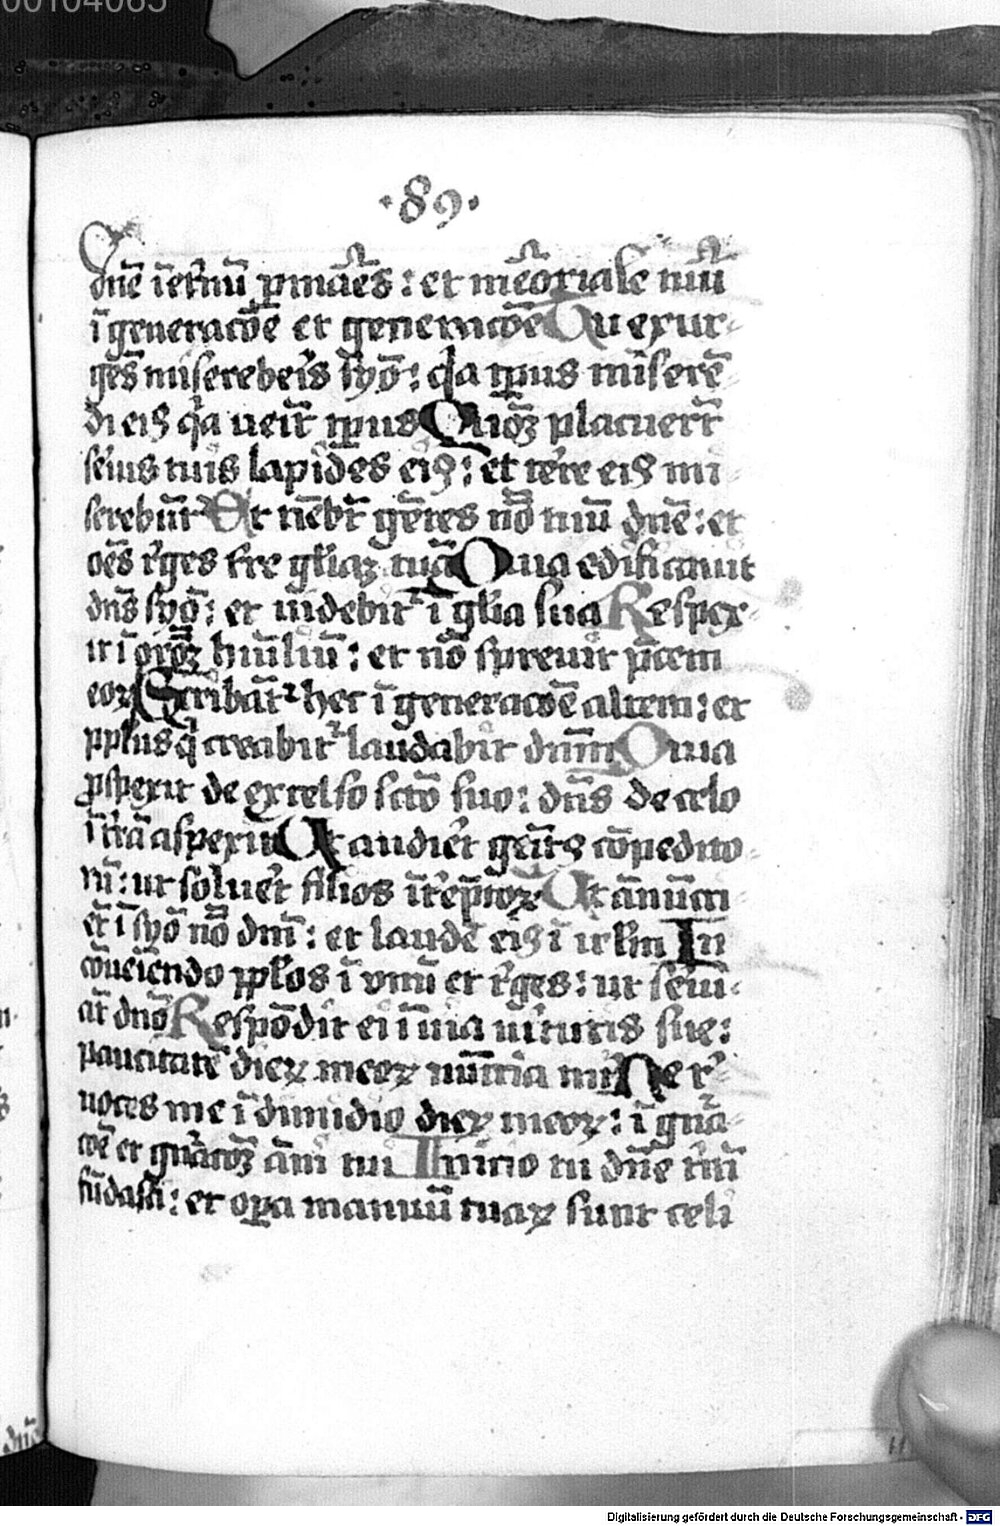 00104065
·89·
dn̄e īet̉nū ꝑmāēs : et mēoriale tuū
ī generacōē et generacōēTu exur-
gēs misereb̉eis syō : q̉a tp̄us miserē-
di eiꝰ q̉a ueīt tp̄usQuiōꝫ placuer̄t
ser̉uis tuis lapides eiꝰ : et ter̉re eiꝰ mi-
sereb̄ūtEt tīeb̄t gētes nōē tuū dn̄e : et
oēs r̉ges tr̄e gl̄iaꝫ tuāQuia edificauit
dn̄s syō : et uidebit̉ ī gl̄ia suaRespex-
it ī orōꝫ hūiliū : et nō spreuit p̄cem
eoꝝScribāt᷑ hec ī generacōē altera : et
ppl̄us q̉ creabit᷑ laudabit dn̄mQuia
ꝓspexit de excelso sc̄to suo : dn̄s de celo
ī tr̄ā aspexitUt audir̉et gēitꝰ cōpedito-
rū : ut soluer̉et filios īter̉ēptoꝝUt ānūci-
ēt ī syō nōē dn̄i : et laudē eiꝰ ī irl̄m In
cōueiēndo ppl̄os ī vnū et r̉ges : ut ser̉ui-
āt dn̄oRespōdit ei ī uia uir̉tutis sue :
paucitatē dieꝝ meoꝝ nūcia mỉNe r̉e-
uoces me ī dimidio dieꝝ meoꝝ : ī gn̄ra-
cōē et gn̄racōꝫ āni tui Inicio tu dn̄e tr̄ā
fūdasti : et oꝑa manuū tuaꝝ sunt celi
Digitalisierung gefördert durch die Deutsche Forschungsgemeinschaft - DFG